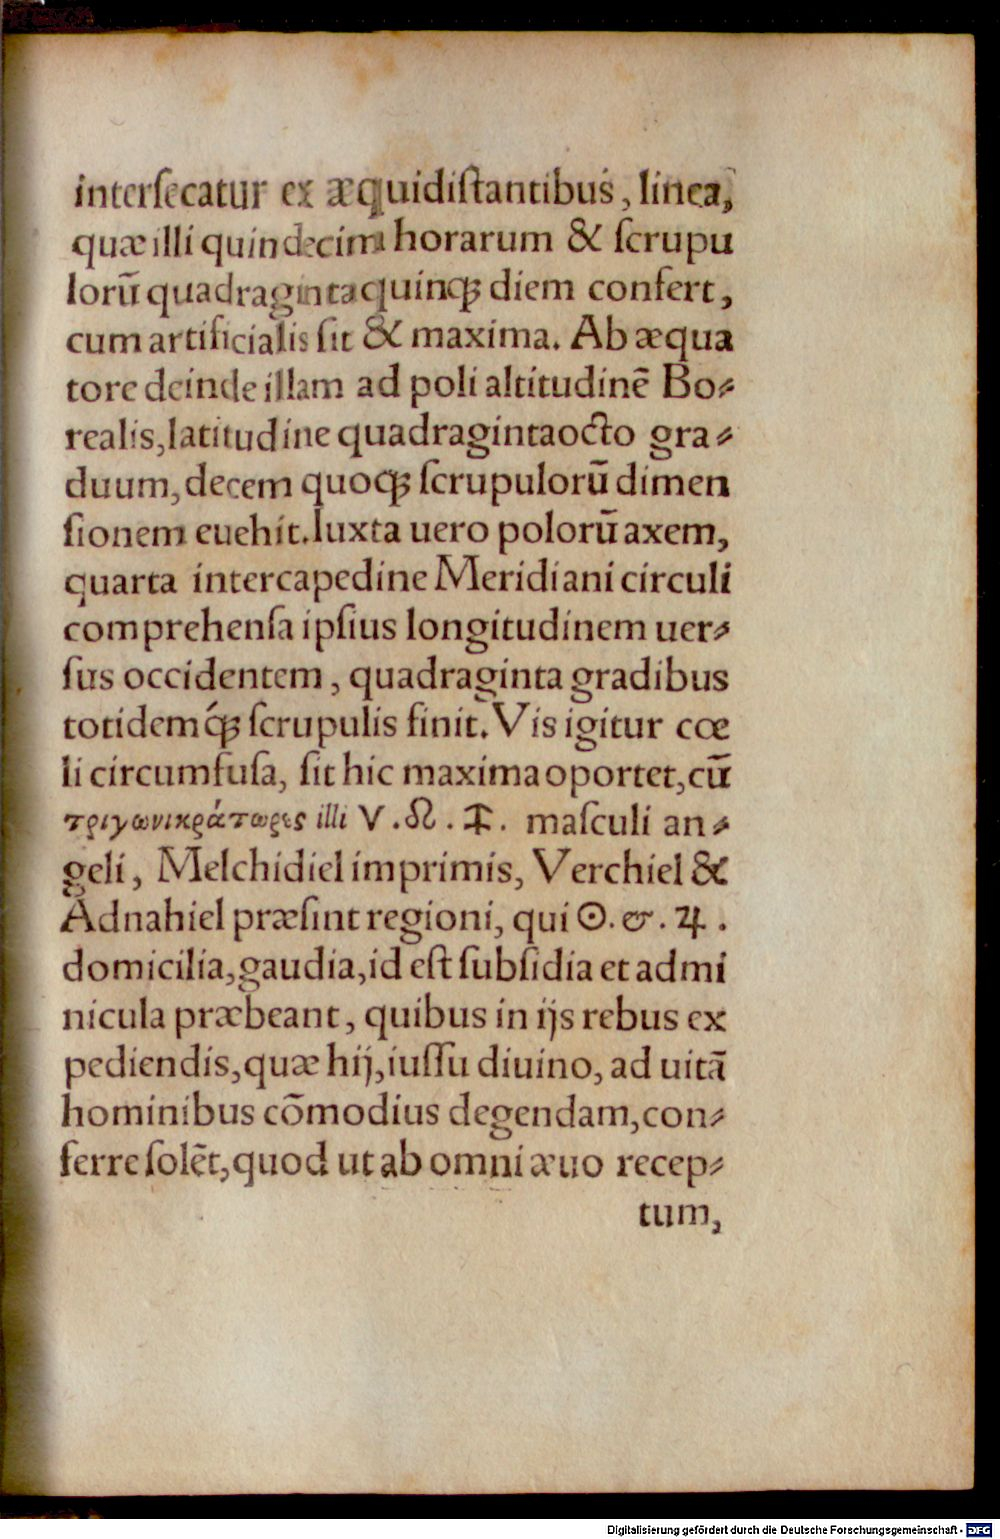 interſecatur ex æquidiſtantibus, linea,
quæ illi quindecim horarum & ſcrupu
lorū quadragintaquinqꝫ diem confert,
cum artificialis ſit & maxima. Ab æqua
tore deinde illam ad poli altitudinē Bo⸗
realis, latitudine quadragintaocto gra⸗
duum, decem quoqꝫ ſcrupulorū dimen
ſionem euehit. Iuxta uero polorū axem,
quarta intercapedine Meridiani circuli
comprehenſa ipſius longitudinem uer⸗
ſus occidentem, quadraginta gradibus
totidemq́ꝫ ſcrupulis finit. Vis igitur cœ
li circumfuſa, ſit hic maxima oportet, cū
τριγωνικράτωρες illi ♈. ♌. ♐. maſculi an⸗
geli, Melchidiel imprimis, Verchiel &
Adnahiel præſint regioni, qui ☉. & . ♃ .
domicilia, gaudia, id eſt ſubſidia et admi
nicula præbeant, quibus in ijs rebus ex
pediendis, quæ hij, iuſſu diuino, ad uitā
hominibus cōmodius degendam, con⸗
ferre ſolēt, quod ut ab omni æuo recep⸗
tum,
Digitalisierung gefördert durch die Deutsche Forschungsgemeinschaft - DFG